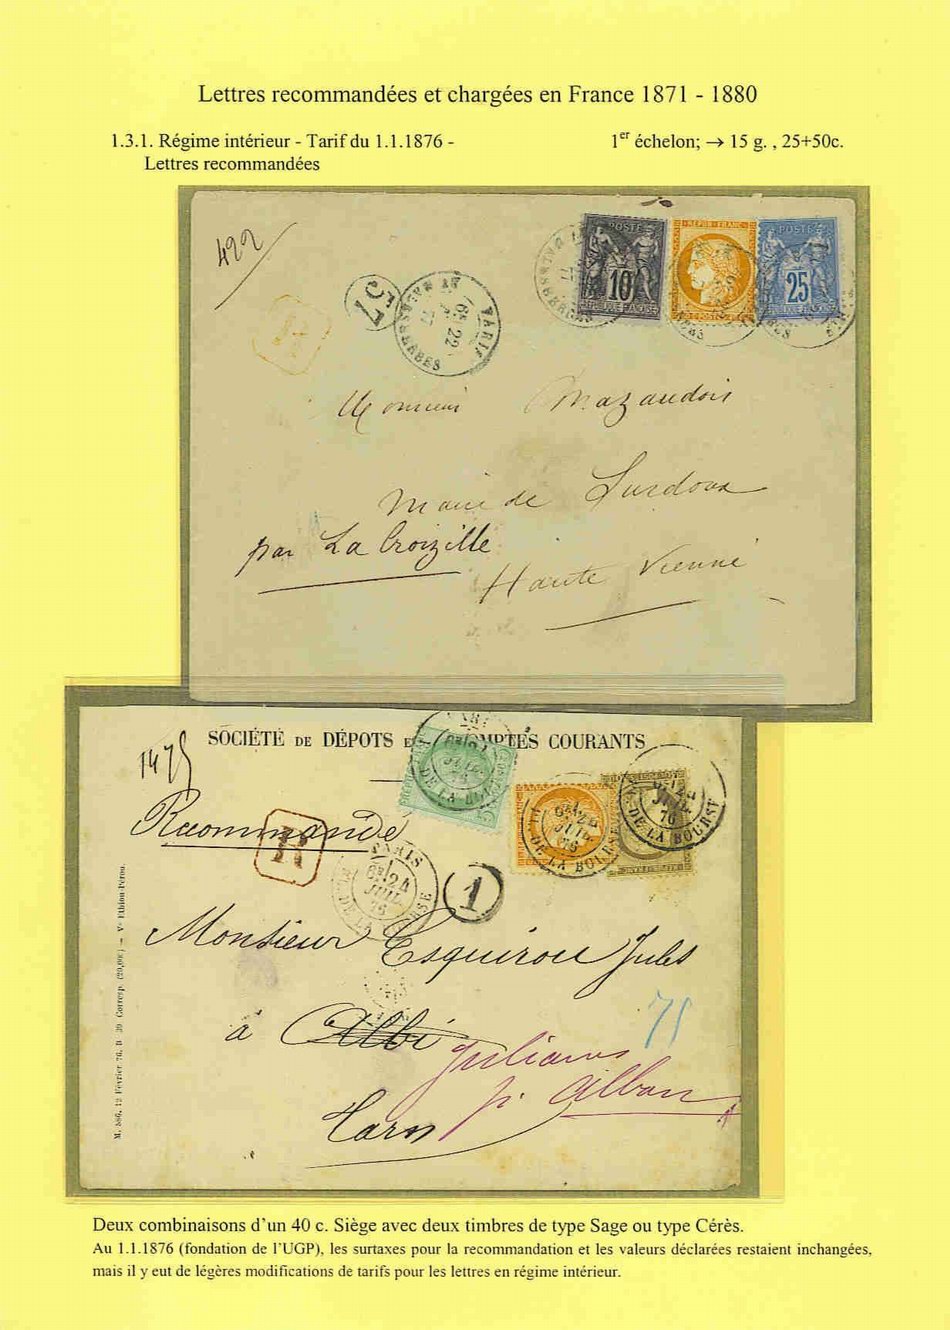 Lettres recommandées et chargées en France 1871 - 1880
1.3.1. Régime intérieur - Tarif du 1.1.1876 -
Lettres recommandées
1er échelon; → 15 g. , 25+50c.
422
57
PARIS
6E 22
77
BD MALESHERBES
R
POSTE
10
REPUB. FRANC.
POSTE
25
Monsieur Mazaudois
Maire de Surdoux
par La Croizille
Haute Vienne
SOCIÉTÉ DE DÉPOTS E MPTES COURANTS
1475
Recommandé
R
PARIS
6E 24
JUIL.
76
PL. DE LA BOURSE
1
JUIL.
76
PL. DE LA BOURSE
Monsieur Esquirou Jules
à Albi
75
Julians
pr Alban
Tarn
M. 586, 12 Février 76. B 39 Corresp. (20,000) — Ve Ethiou-Pérou.
Deux combinaisons d'un 40 c. Siège avec deux timbres de type Sage ou type Cérès.
Au 1.1.1876 (fondation de l'UGP), les surtaxes pour la recommandation et les valeurs déclarées restaient inchangées,
mais il y eut de légères modifications de tarifs pour les lettres en régime intérieur.